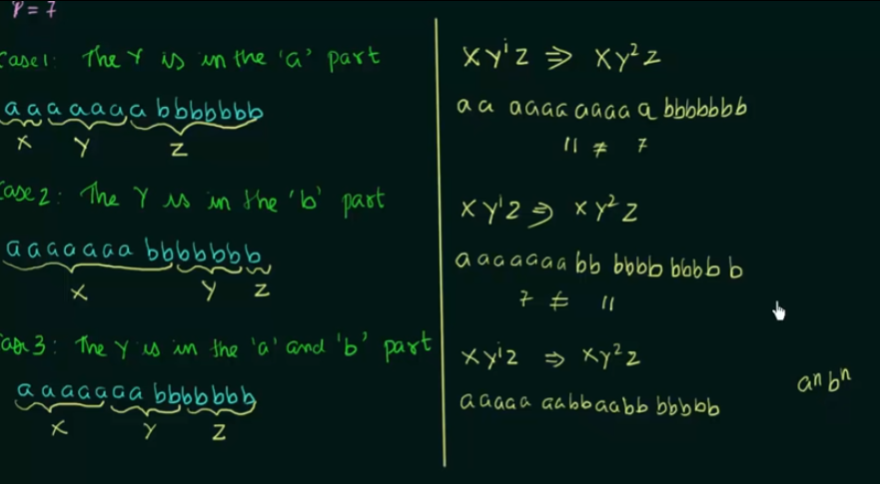 P = 7
Case1: The Y is in the 'a' part
aaaaaaabbbbbbb
X Y Z
Case 2: The Y is in the 'b' part
aaaaaaabbbbbbb
X Y Z
Case 3: The Y is in the 'a' and 'b' part
aaaaaaabbbbbbb
X Y Z
xyⁱz ⇒ xy²z
aa aaaa aaaa a bbbbbbb
11 ≠ 7
xyⁱz ⇒ xy²z
aaaaaaa bb bbbb bbbb b
7 ≠ 11
xyⁱz ⇒ xy²z
aaaaa aabbaabb bbbbb
aⁿbⁿ